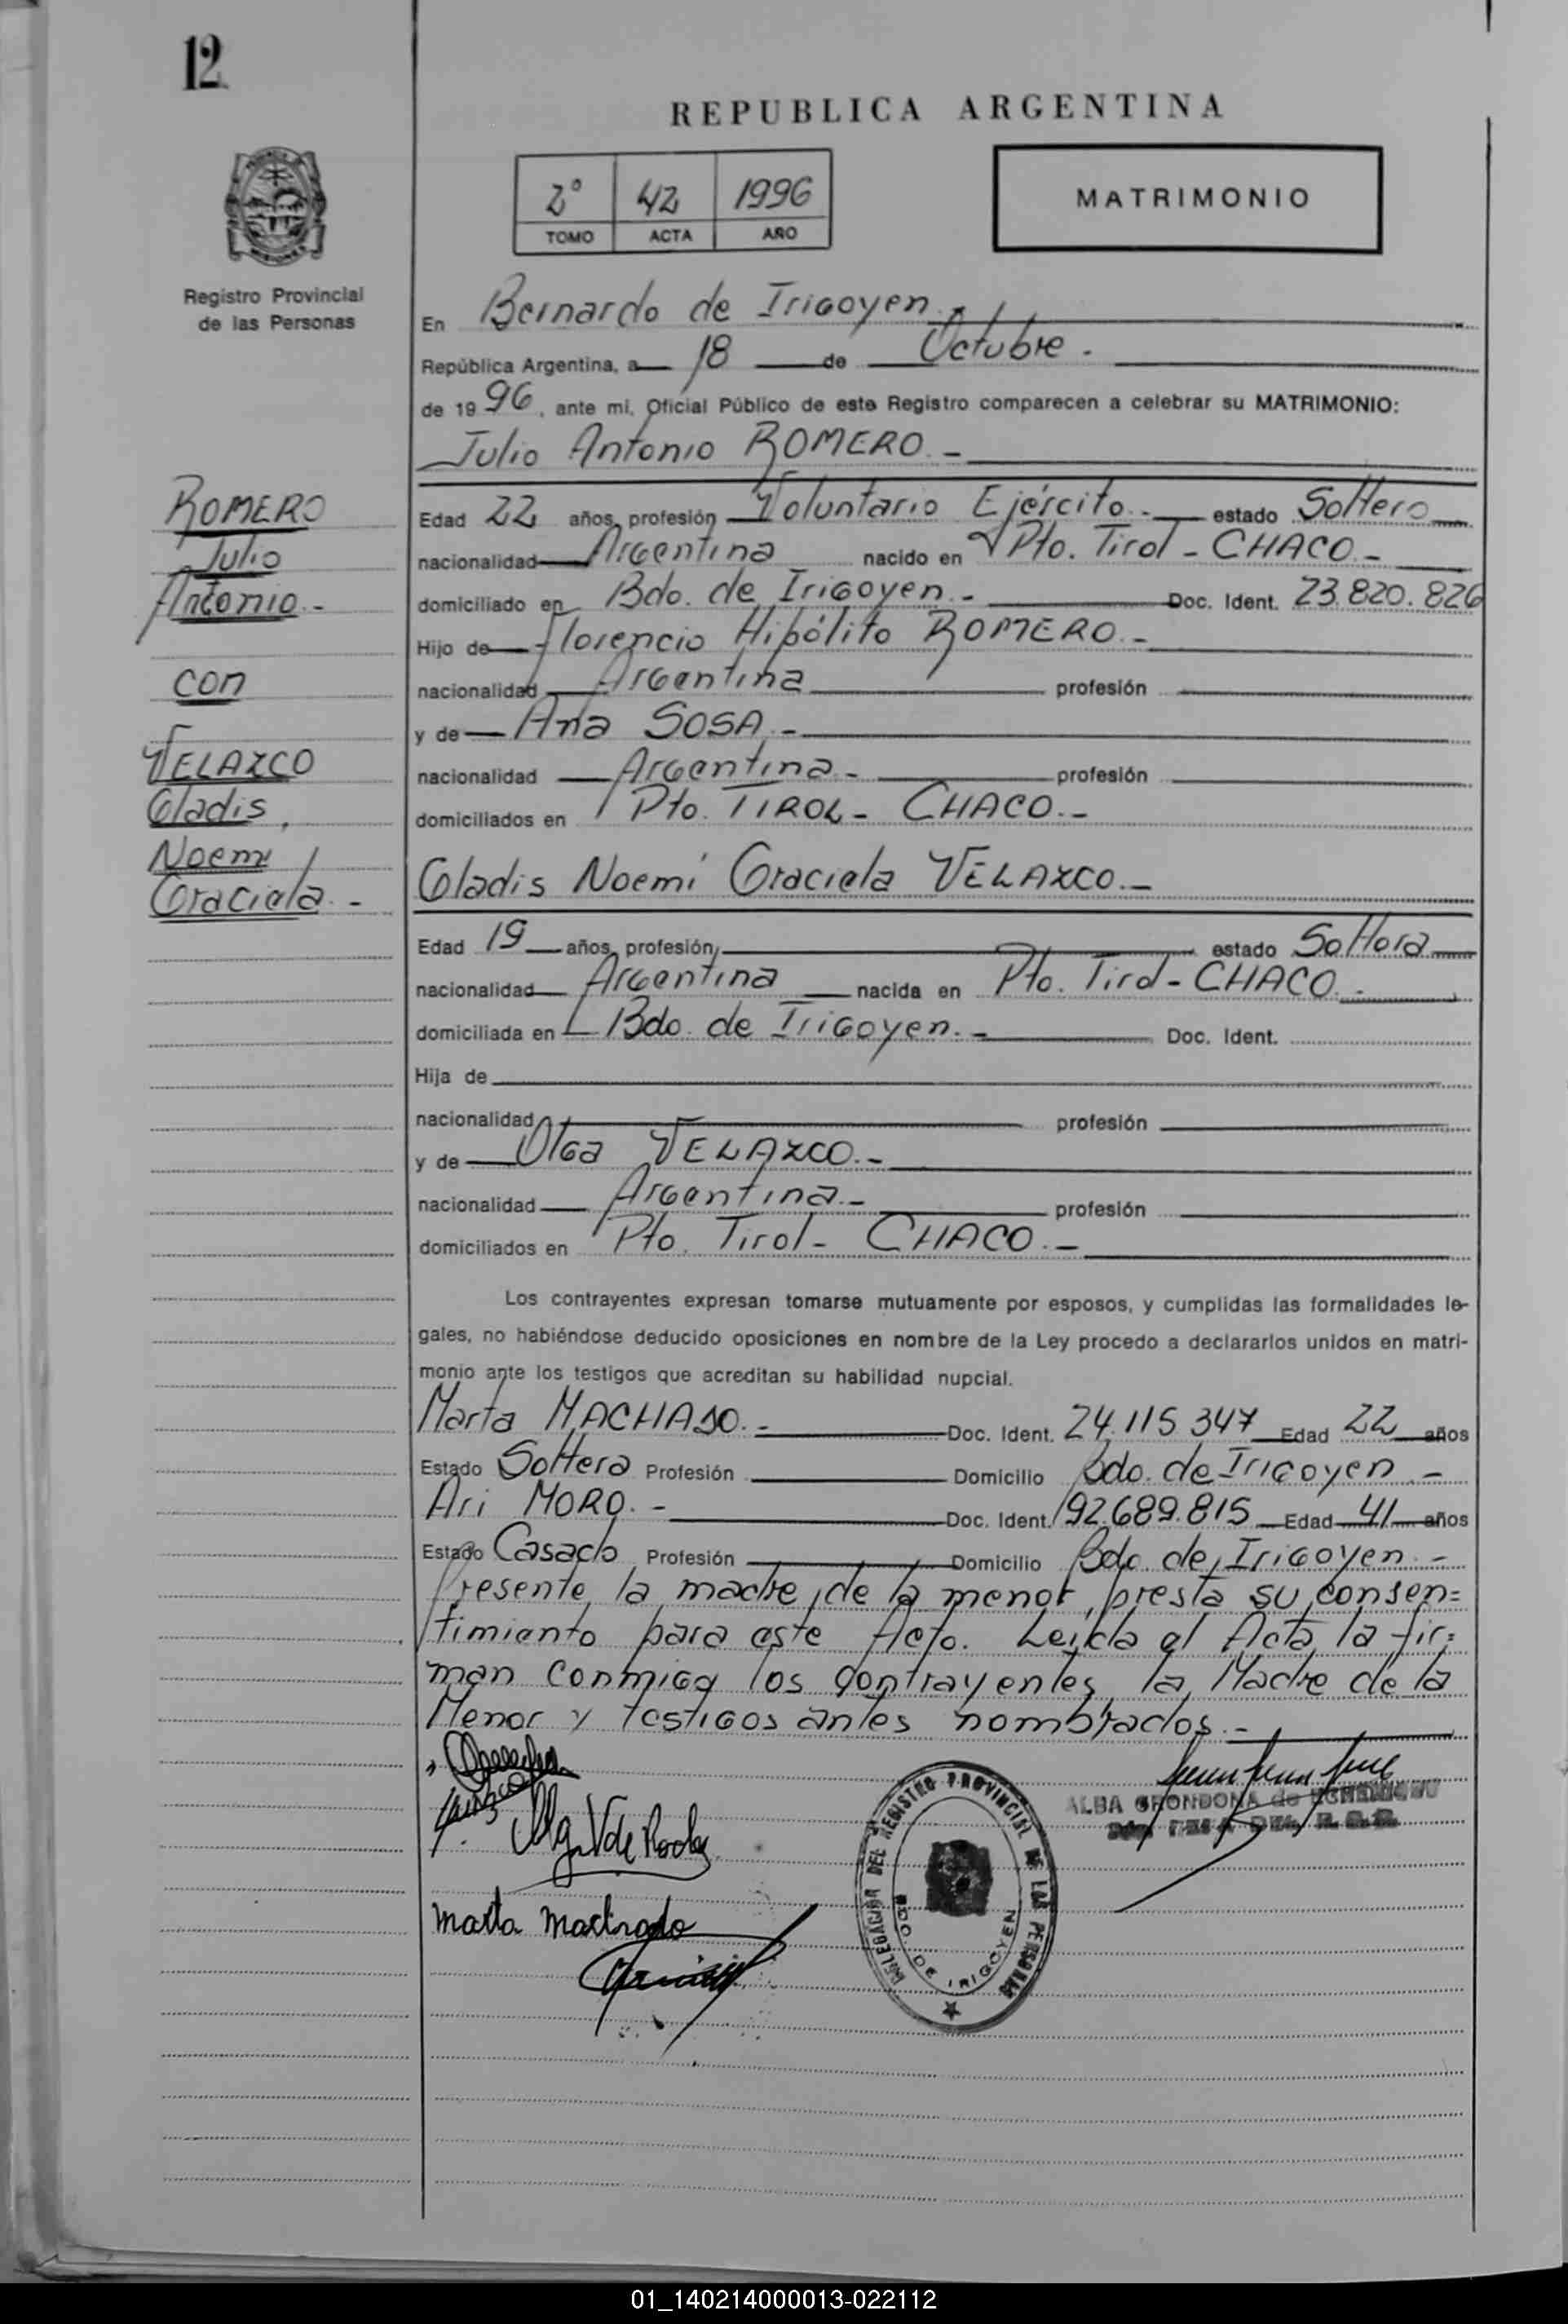 12
REPUBLICA ARGENTINA
2º 42 1996
TOMO ACTA AÑO
MATRIMONIO
Registro Provincial
de las Personas
En Bernardo de Irigoyen.-
República Argentina, a 18 de Octubre.
de 1996, ante mi, Oficial Público de este Registro comparecen a celebrar su MATRIMONIO:
Julio Antonio ROMERO.-
ROMERO
Julio
Antonio.-
con
VELAZCO
Gladis,
Noemi
Graciela.-
Edad 22 años, profesión Voluntario Ejército.- estado Soltero
nacionalidad Argentina nacido en Pto. Tirol - CHACO.-
domiciliado en Bdo. de Irigoyen.- Doc. Ident. 23.820.826
Hijo de Florencio Hipólito ROMERO.-
nacionalidad Argentina profesión
y de Ana SOSA.-
nacionalidad Argentina.- profesión
domiciliados en Pto. TIROL - CHACO.-
Gladis Noemí Graciela VELAZCO.-
Edad 19 años, profesión estado Soltera
nacionalidad Argentina nacida en Pto. Tirol - CHACO.-
domiciliada en Bdo. de Irigoyen.- Doc. Ident.
Hija de
nacionalidad profesión
y de Olga VELAZCO.-
nacionalidad Argentina.- profesión
domiciliados en Pto. Tirol - CHACO.-
Los contrayentes expresan tomarse mutuamente por esposos, y cumplidas las formalidades le-
gales, no habiéndose deducido oposiciones en nombre de la Ley procedo a declararlos unidos en matri-
monio ante los testigos que acreditan su habilidad nupcial.
Marta MACHADO.- Doc. Ident. 24.115.347 Edad 22 años
Estado Soltera Profesión Domicilio Bdo. de Irigoyen.-
Ari MORO.- Doc. Ident. 92.689.815 Edad 41 años
Estado Casado Profesión Domicilio Bdo. de Irigoyen.-
Presente la madre de la menor, presta su consen=
timiento para este Acto. Leída el Acta, la fir=
man conmigo los contrayentes, la Madre de la
Menor y testigos antes nombrados.-
Marta Machado
ALBA GRONDONA de
DELEGACION DEL REGISTRO PROVINCIAL DE LAS PERSONAS
BDO. DE IRIGOYEN
01_140214000013-022112